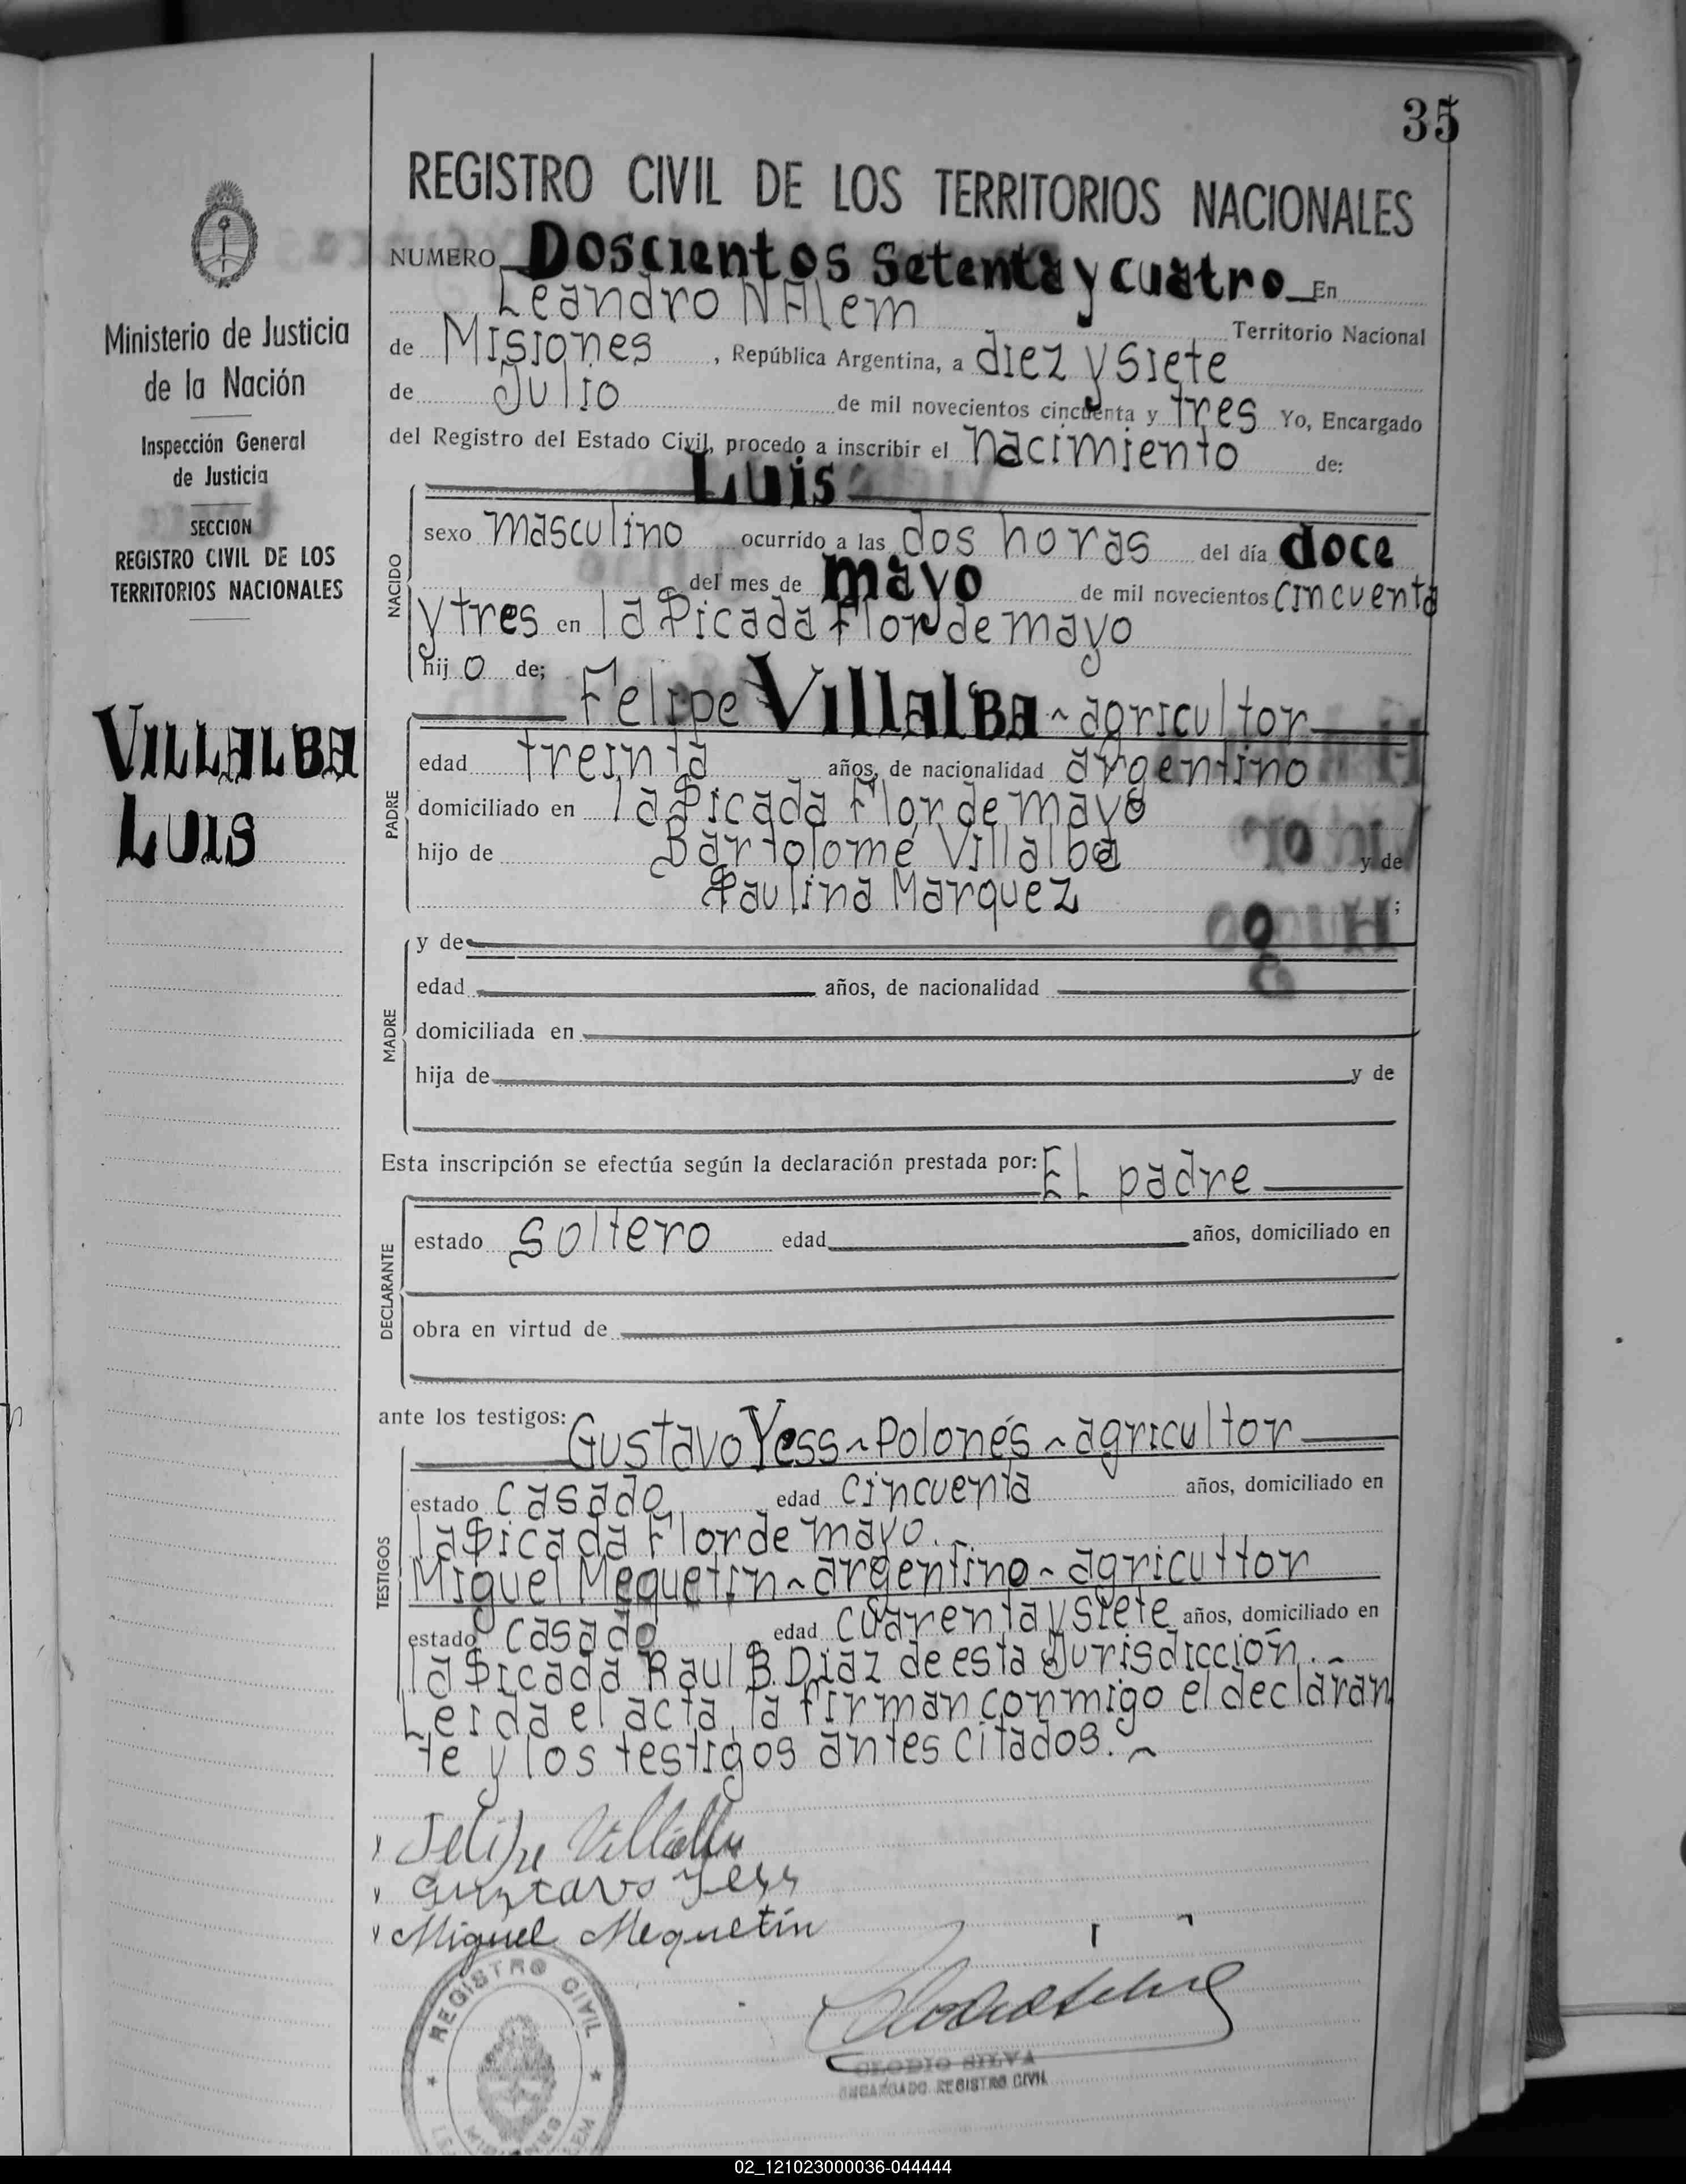 35
REGISTRO CIVIL DE LOS TERRITORIOS NACIONALES
NUMERO Doscientos Setenta y cuatro En
Leandro N Alem Territorio Nacional
de Misiones, República Argentina, a diez y siete
de Julio de mil novecientos cincuenta y tres Yo, Encargado
del Registro del Estado Civil, procedo a inscribir el nacimiento de:
Luis
sexo masculino ocurrido a las dos horas del día doce
del mes de mayo de mil novecientos cincuenta
y tres en la Picada Flor de mayo
hijo de;
Felipe Villalba ~ agricultor
edad treinta años, de nacionalidad argentino
domiciliado en la Picada Flor de mayo
hijo de Bartolomé Villalba y de
Paulina Marquez ;
y de
edad años, de nacionalidad
domiciliada en
hija de y de
Esta inscripción se efectúa según la declaración prestada por: El padre
estado soltero edad años, domiciliado en
obra en virtud de
ante los testigos: Gustavo Yess ~ Polonés ~ agricultor
estado casado edad cincuenta años, domiciliado en
la Picada Flor de mayo.
Miguel Mequetin ~ argentino ~ agricultor
estado casado edad cuarenta y siete años, domiciliado en
la Picada Raul B. Diaz de esta Jurisdicción. ~
Leida el acta, la firman conmigo el declaran
te y los testigos antes citados. ~
Felipe Villalba
Gustavo Yess
Miguel Mequetín
CLODIO SILVA
ENCARGADO REGISTRO CIVIL
REGISTRO CIVIL
NACIDO
PADRE
MADRE
DECLARANTE
TESTIGOS
Ministerio de Justicia
de la Nación
Inspección General
de Justicia
SECCION
REGISTRO CIVIL DE LOS
TERRITORIOS NACIONALES
VILLALBA
LUIS
02_121023000036-044444